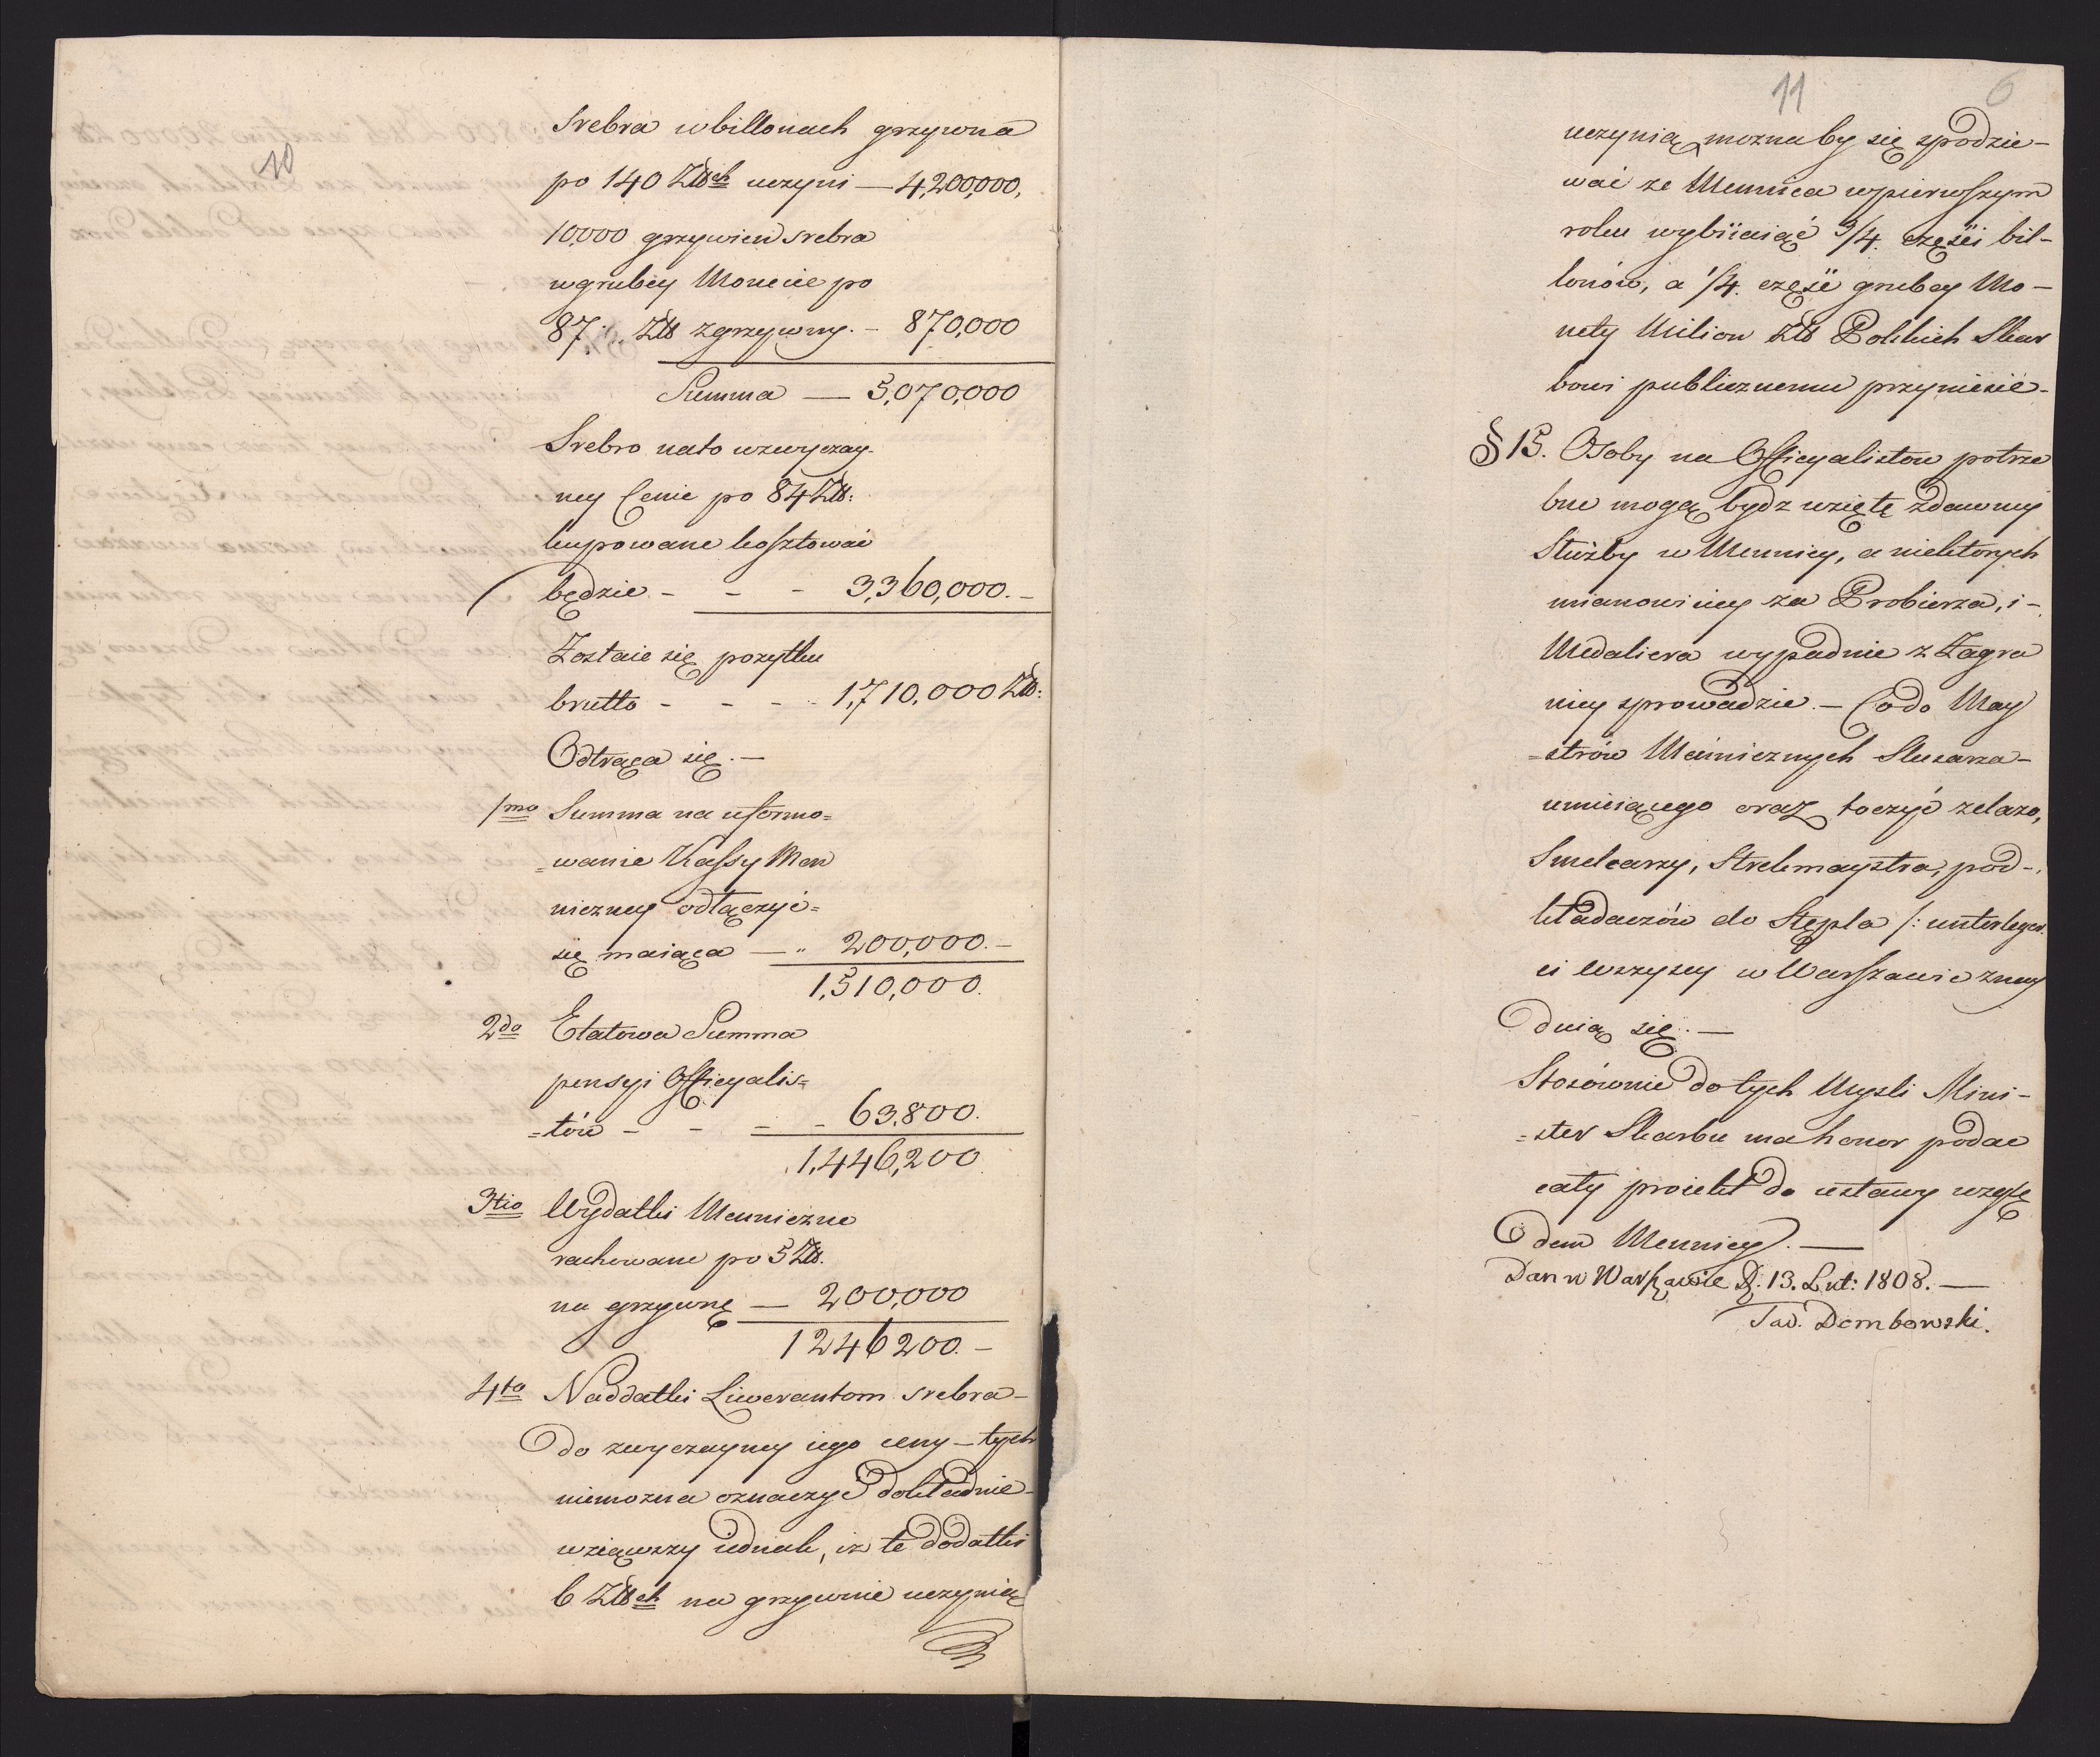 10
Srebra w billonach grzywna
po 140 Złłch uczyni — 4,200,000,
10,000 grzywien srebra
w grubey Monecie po
87 „ Złł z grzywny. – 870,000
Summa — 5,070,000
Srebro na to w zwyczay-
ney Cenie po 84 Złł:
kupowane kosztować
będzie – – – 3,360,000.–
Zostaie się pozytku
brutto – – – 1,710,000 Złł:
Odtrąca się. –
1mo Summa na uformo=
=wanie Kassy Men
niczney odłączyć=
się maiąca — „ 200,000.–
1,510,000.
2do Etatowa Summa
pensyi Officyalis=
=tów – – – – 63,800.
1,446,200
3tio Wydatki Menniczne
rachowane po 5 Złł.
na grzywnę — 200,000
1246200.–
4to Naddatki Liwerantom srebra –
do zwyczayney iego ceny – tych
niemozna oznaczyć dokładnie –
wziąwszy iednak, iz te dodatki
6 Złłch na grzywnie uczynią
11 6
uczynią, moznaby się spodzie–
wać ze Mennica w pierwszym
roku wybiiaiąć 3/4. częsci bil–
lonów, a 1/4. częśc grubey Mo–
nety Milion Złł Polskich Skar
bowi publicznemu przyniesie –
§ 15. Osoby na Officyalistow potrze
bne mogą bydz wziętę z dawney
Służby w Mennicy, a niektorych
mianowiciey za Probierza, i –
Medaliera wypadnie z Zagra
nicy sprowadzic. – Co do May
=strów Menniczných Slusarza –
umieiącego oraz toczyć zelazo,
Smelcarzy, Strekmaystra, pod–
kładaczów do Stępla /: unterleger.
ci wszyscy w Warszawie znay
duią się. —
Stosównie do tych Mysli Mini–
=ster Skarbu ma honor podac
cały proiekt do ustawy wzglę
dem Mennicy. —
Dan w Warszawie D. 13. Lut: 1808. —
Tad. Dembowski.